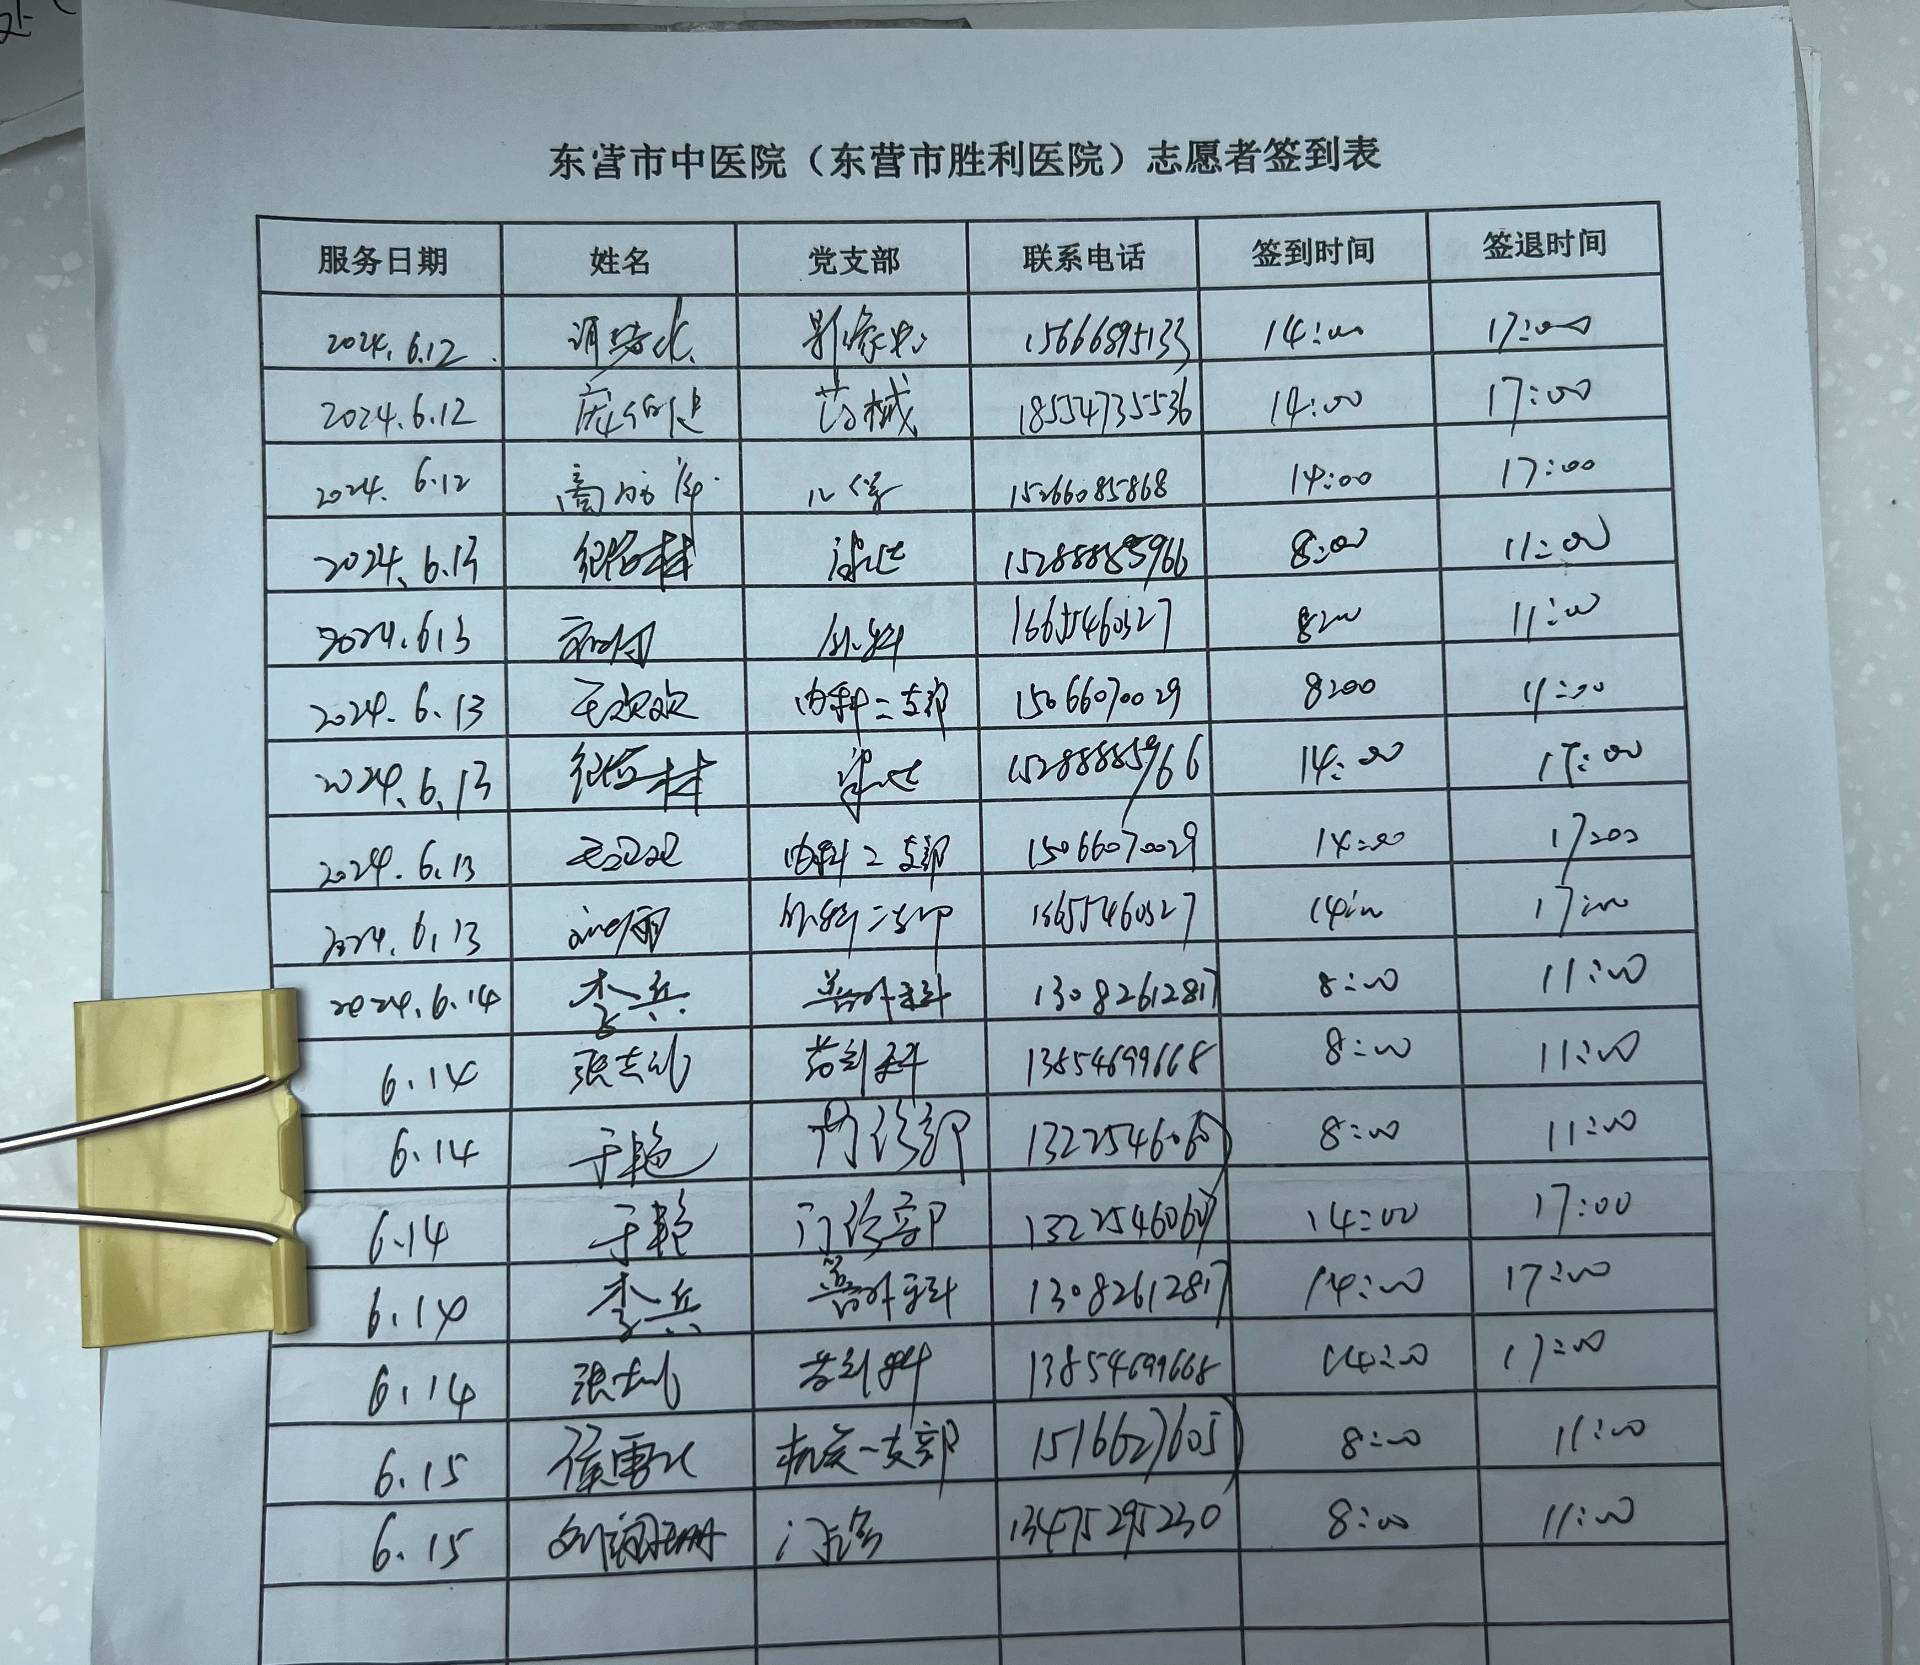 东营市中医院（东营市胜利医院）志愿者签到表
服务日期 姓名 党支部 联系电话 签到时间 签退时间
2024.6.12 15666895133 14:00 17:00
2024.6.12 药械 18554735536 14:00 17:00
2024.6.12 15266085868 14:00 17:00
2024.6.13 15288885966 8:00 11:00
2024.6.13 外科 16655460327 8:00 11:00
2024.6.13 王欢欢 内科二支部 15066070029 8:00 11:00
2024.6.13 15288885966 14:00 17:00
2024.6.13 王欢欢 内科二支部 15066070029 14:00 17:00
2024.6.13 外科二支部 14:00 17:00
2024.6.14 李兵 普外科 13082612817 8:00 11:00
6.14 药剂科 13854699668 8:00 11:00
6.14 于艳 门诊部 8:00 11:00
6.14 于艳 门诊部 14:00 17:00
6.14 李兵 普外科 13082612817 14:00 17:00
6.14 药剂科 13854699668 14:00 17:00
6.15 机关一支部 15166276051 8:00 11:00
6.15 门诊 13475295230 8:00 11:00